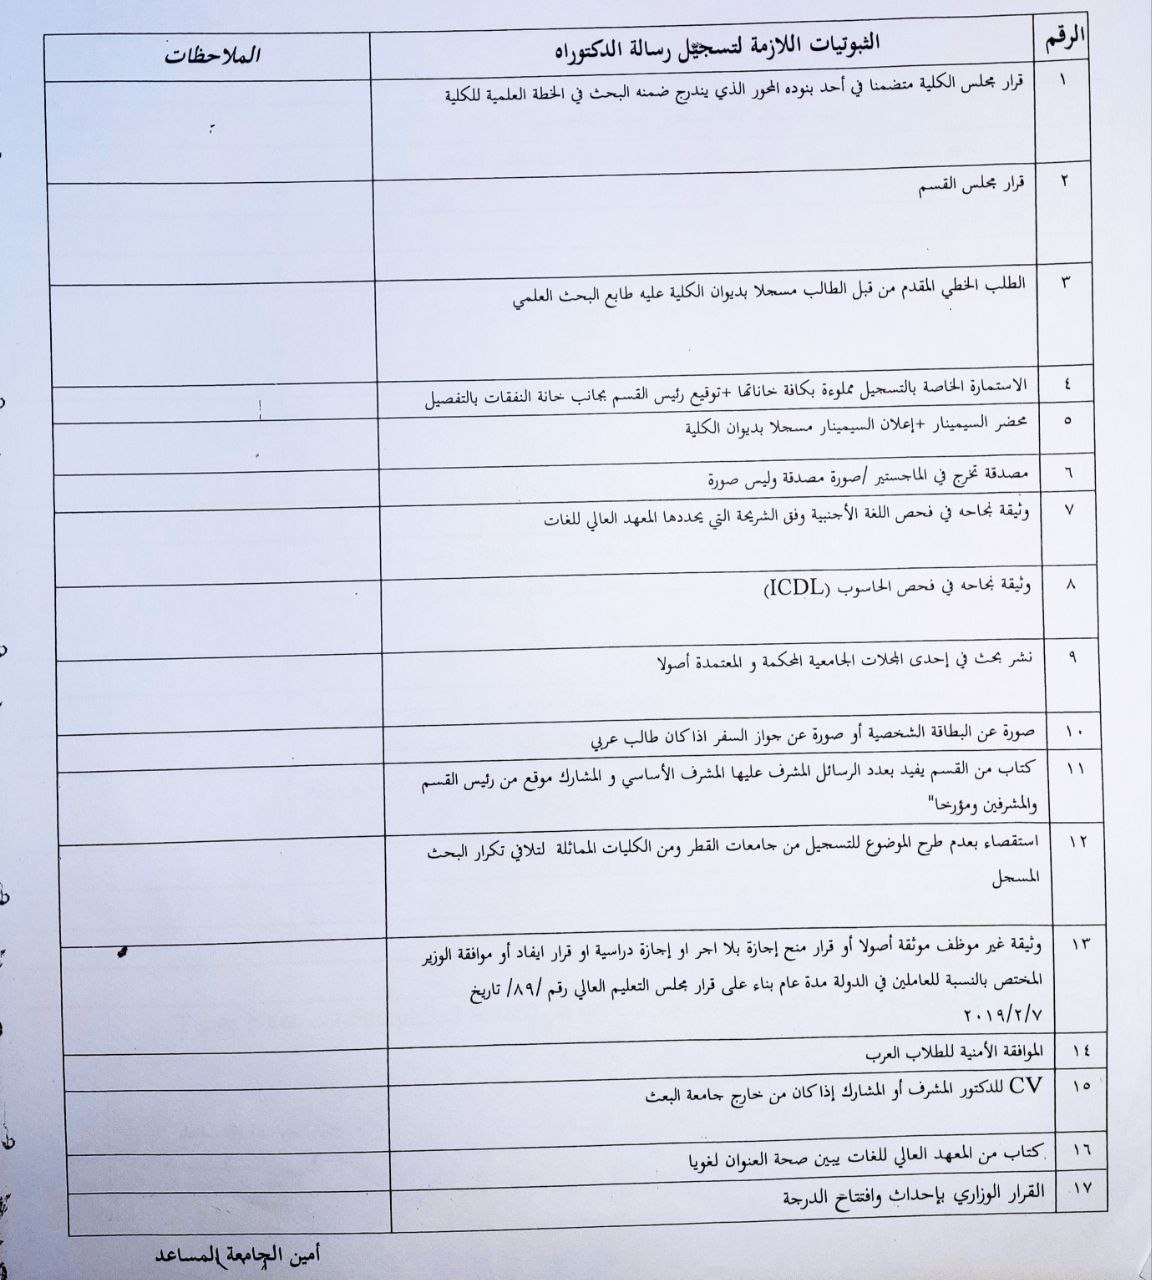 الرقم الثبوتيات اللازمة لتسجيل رسالة الدكتوراه الملاحظات
١ قرار مجلس الكلية متضمنا في أحد بنوده المحور الذي يندرج ضمنه البحث في الخطة العلمية للكلية
٢ قرار مجلس القسم
٣ الطلب الخطي المقدم من قبل الطالب مسجلا بديوان الكلية عليه طابع البحث العلمي
٤ الاستمارة الخاصة بالتسجيل مملوءة بكافة خاناتها +توقيع رئيس القسم بجانب خانة النفقات بالتفصيل
٥ محضر السيمينار +إعلان السيمينار مسجلا بديوان الكلية
٦ مصدقة تخرج في الماجستير /صورة مصدقة وليس صورة
٧ وثيقة نجاحه في فحص اللغة الأجنبية وفق الشريحة التي يحددها المعهد العالي للغات
٨ وثيقة نجاحه في فحص الحاسوب (ICDL)
٩ نشر بحث في إحدى المجلات الجامعية المحكمة و المعتمدة أصولا
١٠ صورة عن البطاقة الشخصية أو صورة عن جواز السفر اذا كان طالب عربي
١١ كتاب من القسم يفيد بعدد الرسائل المشرف عليها المشرف الأساسي و المشارك موقع من رئيس القسم
والمشرفين ومؤرخا"
١٢ استقصاء بعدم طرح الموضوع للتسجيل من جامعات القطر ومن الكليات المماثلة لتلافي تكرار البحث
المسجل
١٣ وثيقة غير موظف موثقة أصولا أو قرار منح إجازة بلا اجر او إجازة دراسية او قرار ايفاد أو موافقة الوزير
المختص بالنسبة للعاملين في الدولة مدة عام بناء على قرار مجلس التعليم العالي رقم /٨٩/ تاريخ
٢٠١٩/٢/٧
١٤ الموافقة الأمنية للطلاب العرب
١٥ CV للدكتور المشرف أو المشارك إذا كان من خارج جامعة البعث
١٦ كتاب من المعهد العالي للغات يبين صحة العنوان لغويا
١٧ القرار الوزاري بإحداث وافتتاح الدرجة
أمين الجامعة المساعد